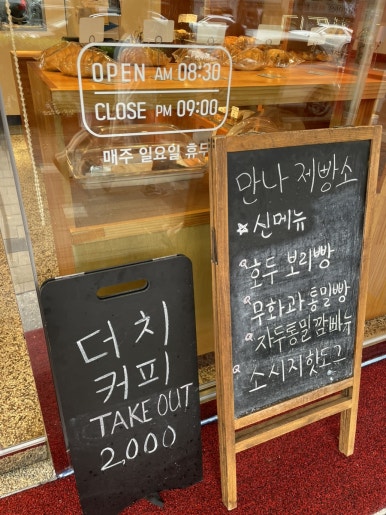 OPEN AM 08:30
CLOSE PM 09:00
매주 일요일 휴무
만나 제빵소
신메뉴
호두 보리빵
무화과 통밀빵
자두통밀깜빠뉴
소시지핫도그
더치
커피
TAKE OUT
2,000